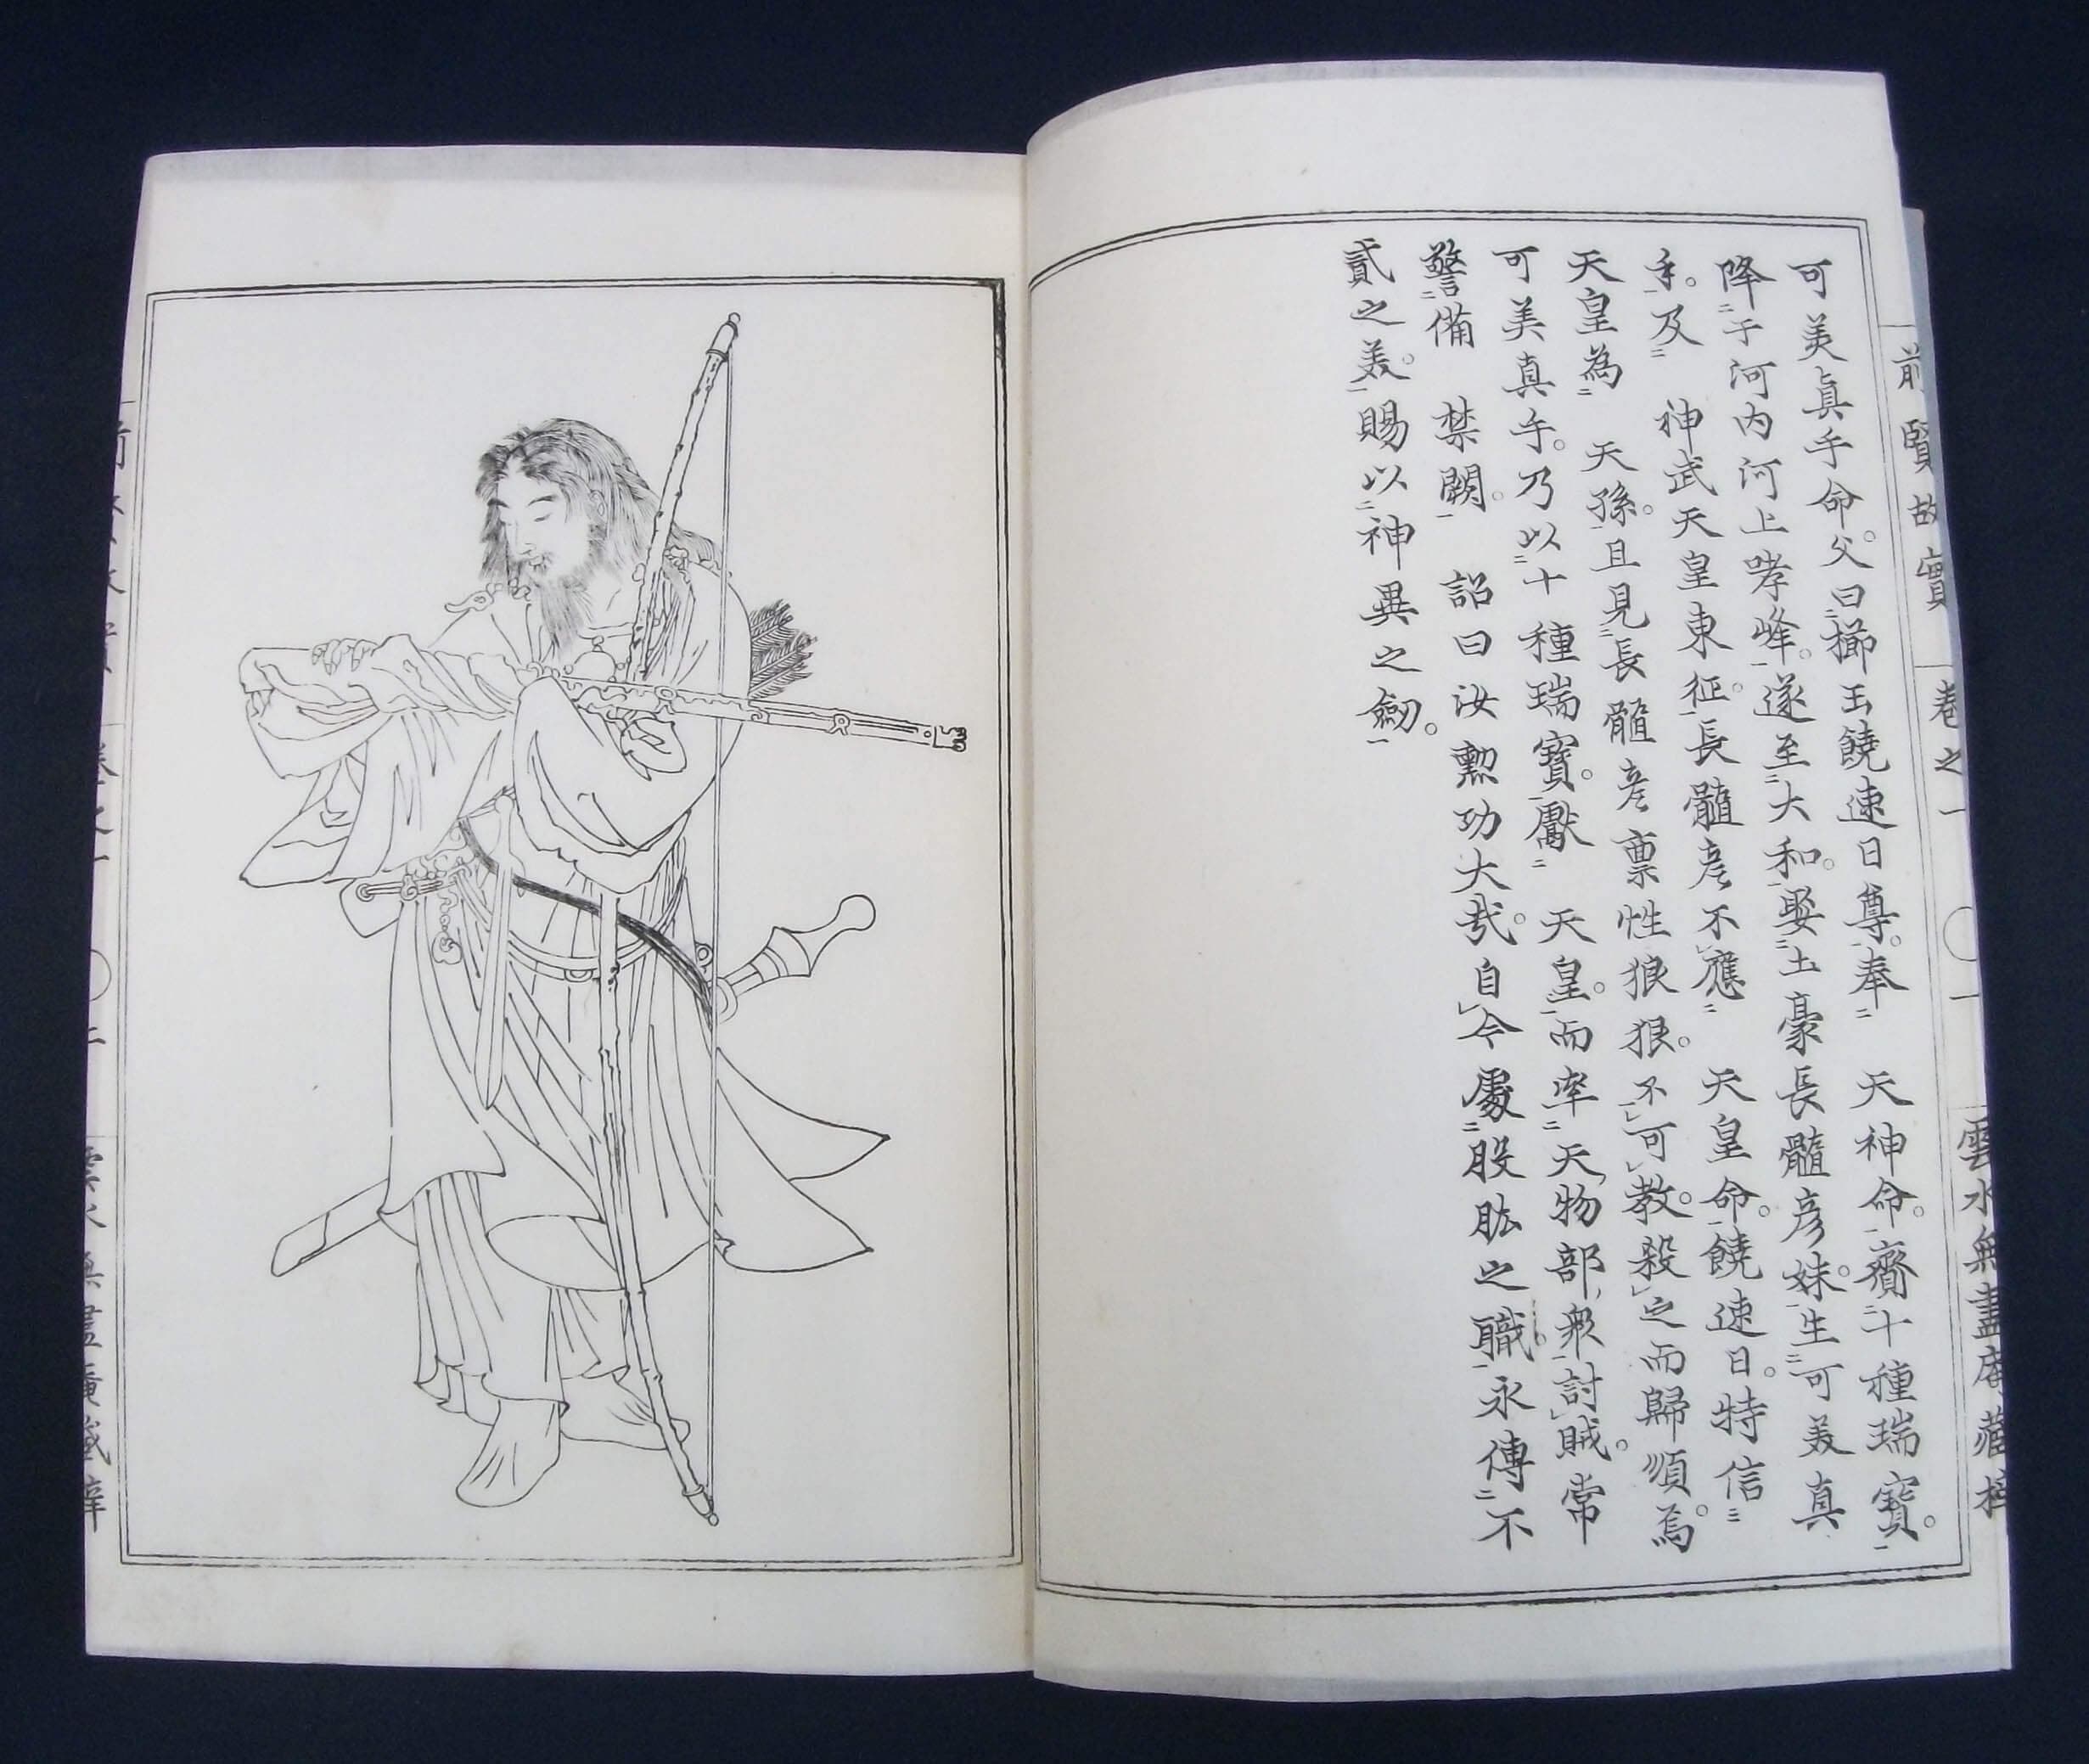 可美真手命。父曰櫛玉饒速日尊。奉二　天神命一。齎二十種瑞寶一。
降二于河内河上哮峰一。遂至二大和一。娶二土豪長髓彦妹一。生二可美真
手一。及三　神武天皇東征一。長髓彦不レ應二　天皇命一。饒速日。特信三
天皇為二　天孫一。且見二長髓彦稟性狼狠。不レ可レ教。殺レ之而歸順焉。
可美真手。乃以二十種瑞寶一。獻二　天皇一。而率二天物部衆一討レ賊。常
警二備　禁闕一。　詔曰汝勲功大哉。自レ今處二股肱之職一。永傳二不
貳之美一。賜以二神異之劒一。
前賢故實　卷之一　〇一　雲水無盡庵藏梓
卷之一　〇二　雲水無盡庵藏梓